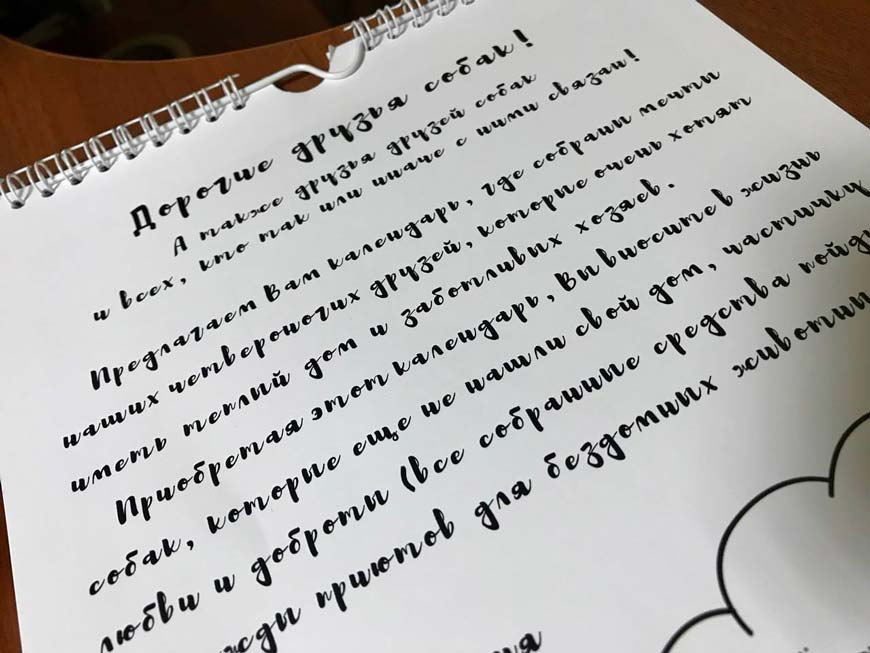 Дорогие друзья собак!
А также друзья друзей собак
и всех, кто так или иначе с ними связан!
Предлагаем Вам календарь, где собраны мечты
наших четвероногих друзей, которые очень хотят
иметь теплый дом и заботливых хозяев.
Приобретая этот календарь, Вы вносите в жизнь
собак, которые еще не нашли свой дом, частичку
любви и доброты (все собранные средства пойду
жды приютов для бездомных животны